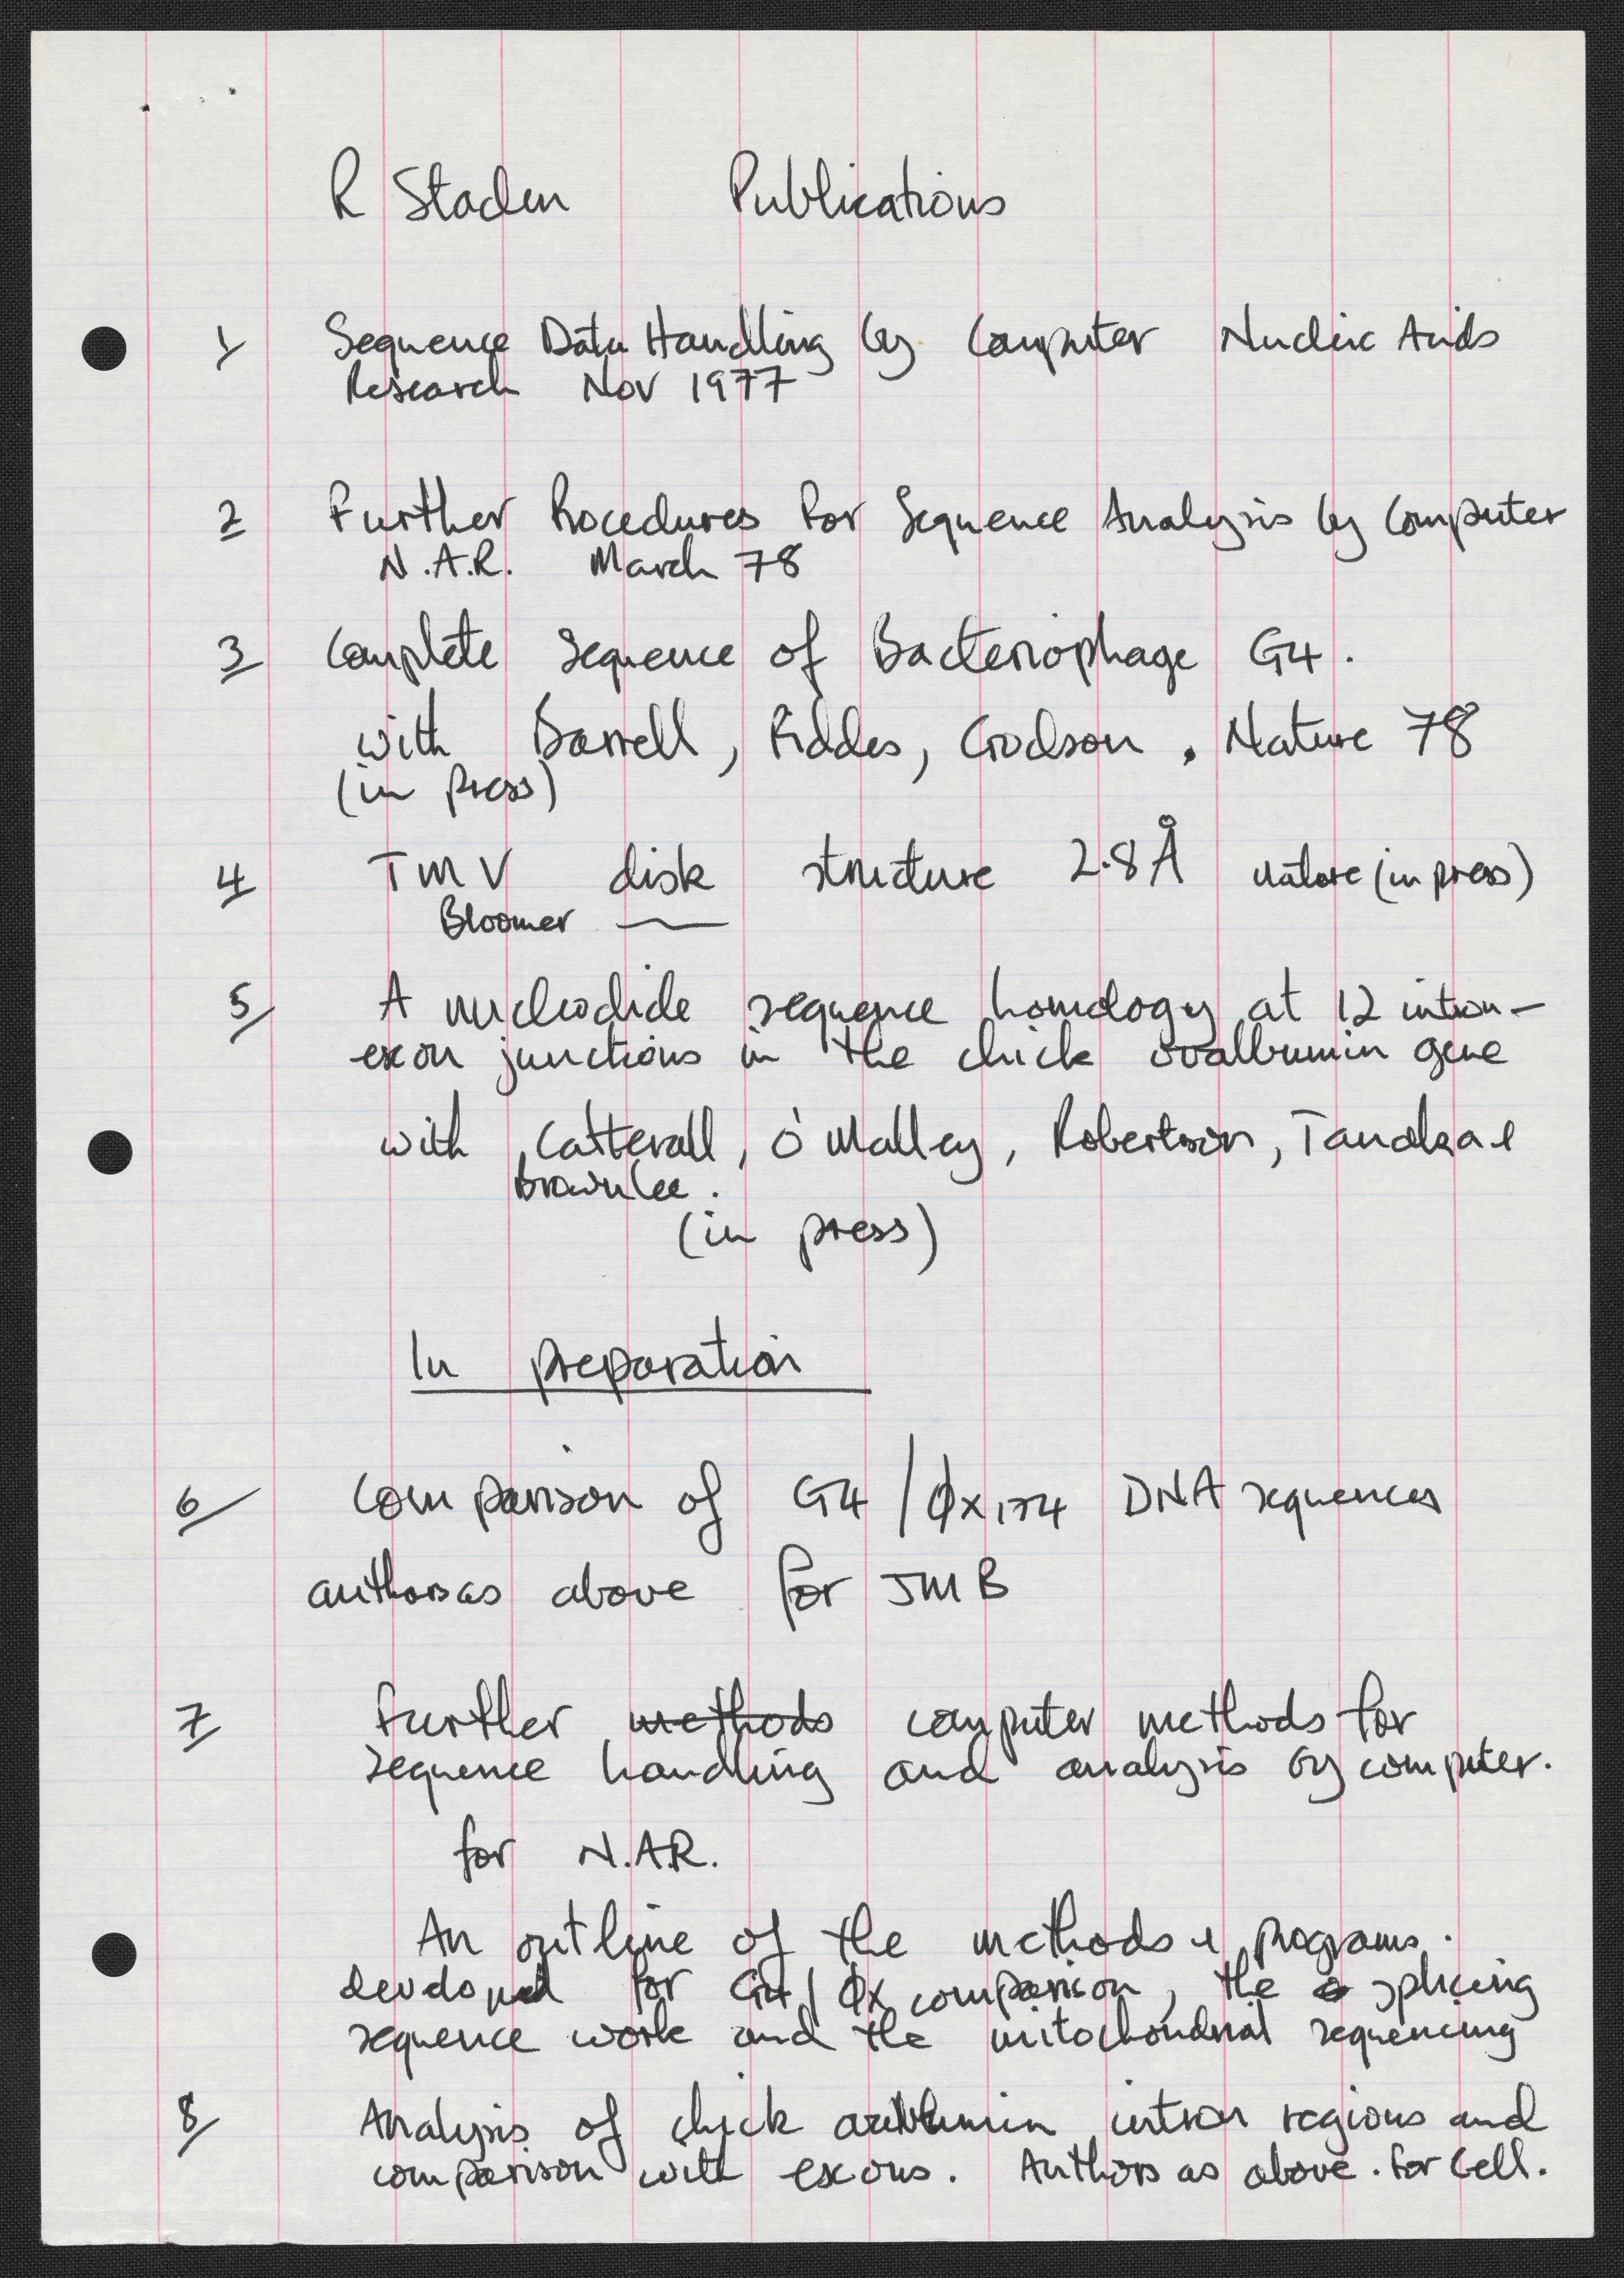 R Staden Publications
1/ Sequence Data Handling by Computer Nucleic Acids
Research Nov 1977
2 Further Procedures for Sequence Analysis by Computer
N.A.R. March 78
3 Complete Sequence of Bacteriophage G4.
with Barrell, Fiddes, Godson, Nature 78
(in press)
4 TMV disk structure 2.8Å nature (in press)
Bloomer
5/ A nucleotide sequence homology at 12 intron-
exon junctions in the chick ovalbumin gene
with Catterall, O'Malley, Robertson, Tanaka &
Brownlee.
(in press)
In preparation
6/ Comparison of G4/ϕX174 DNA sequences
authors as above for JMB
7 Further methods computer methods for
sequence handling and analysis by computer.
for N.A.R.
An outline of the methods & programs.
developed for G4/ϕX comparison, the splicing
sequence work and the mitochondrial sequencing
8/ Analysis of chick intron regions and
comparison with exons. Authors as above. For Cell.